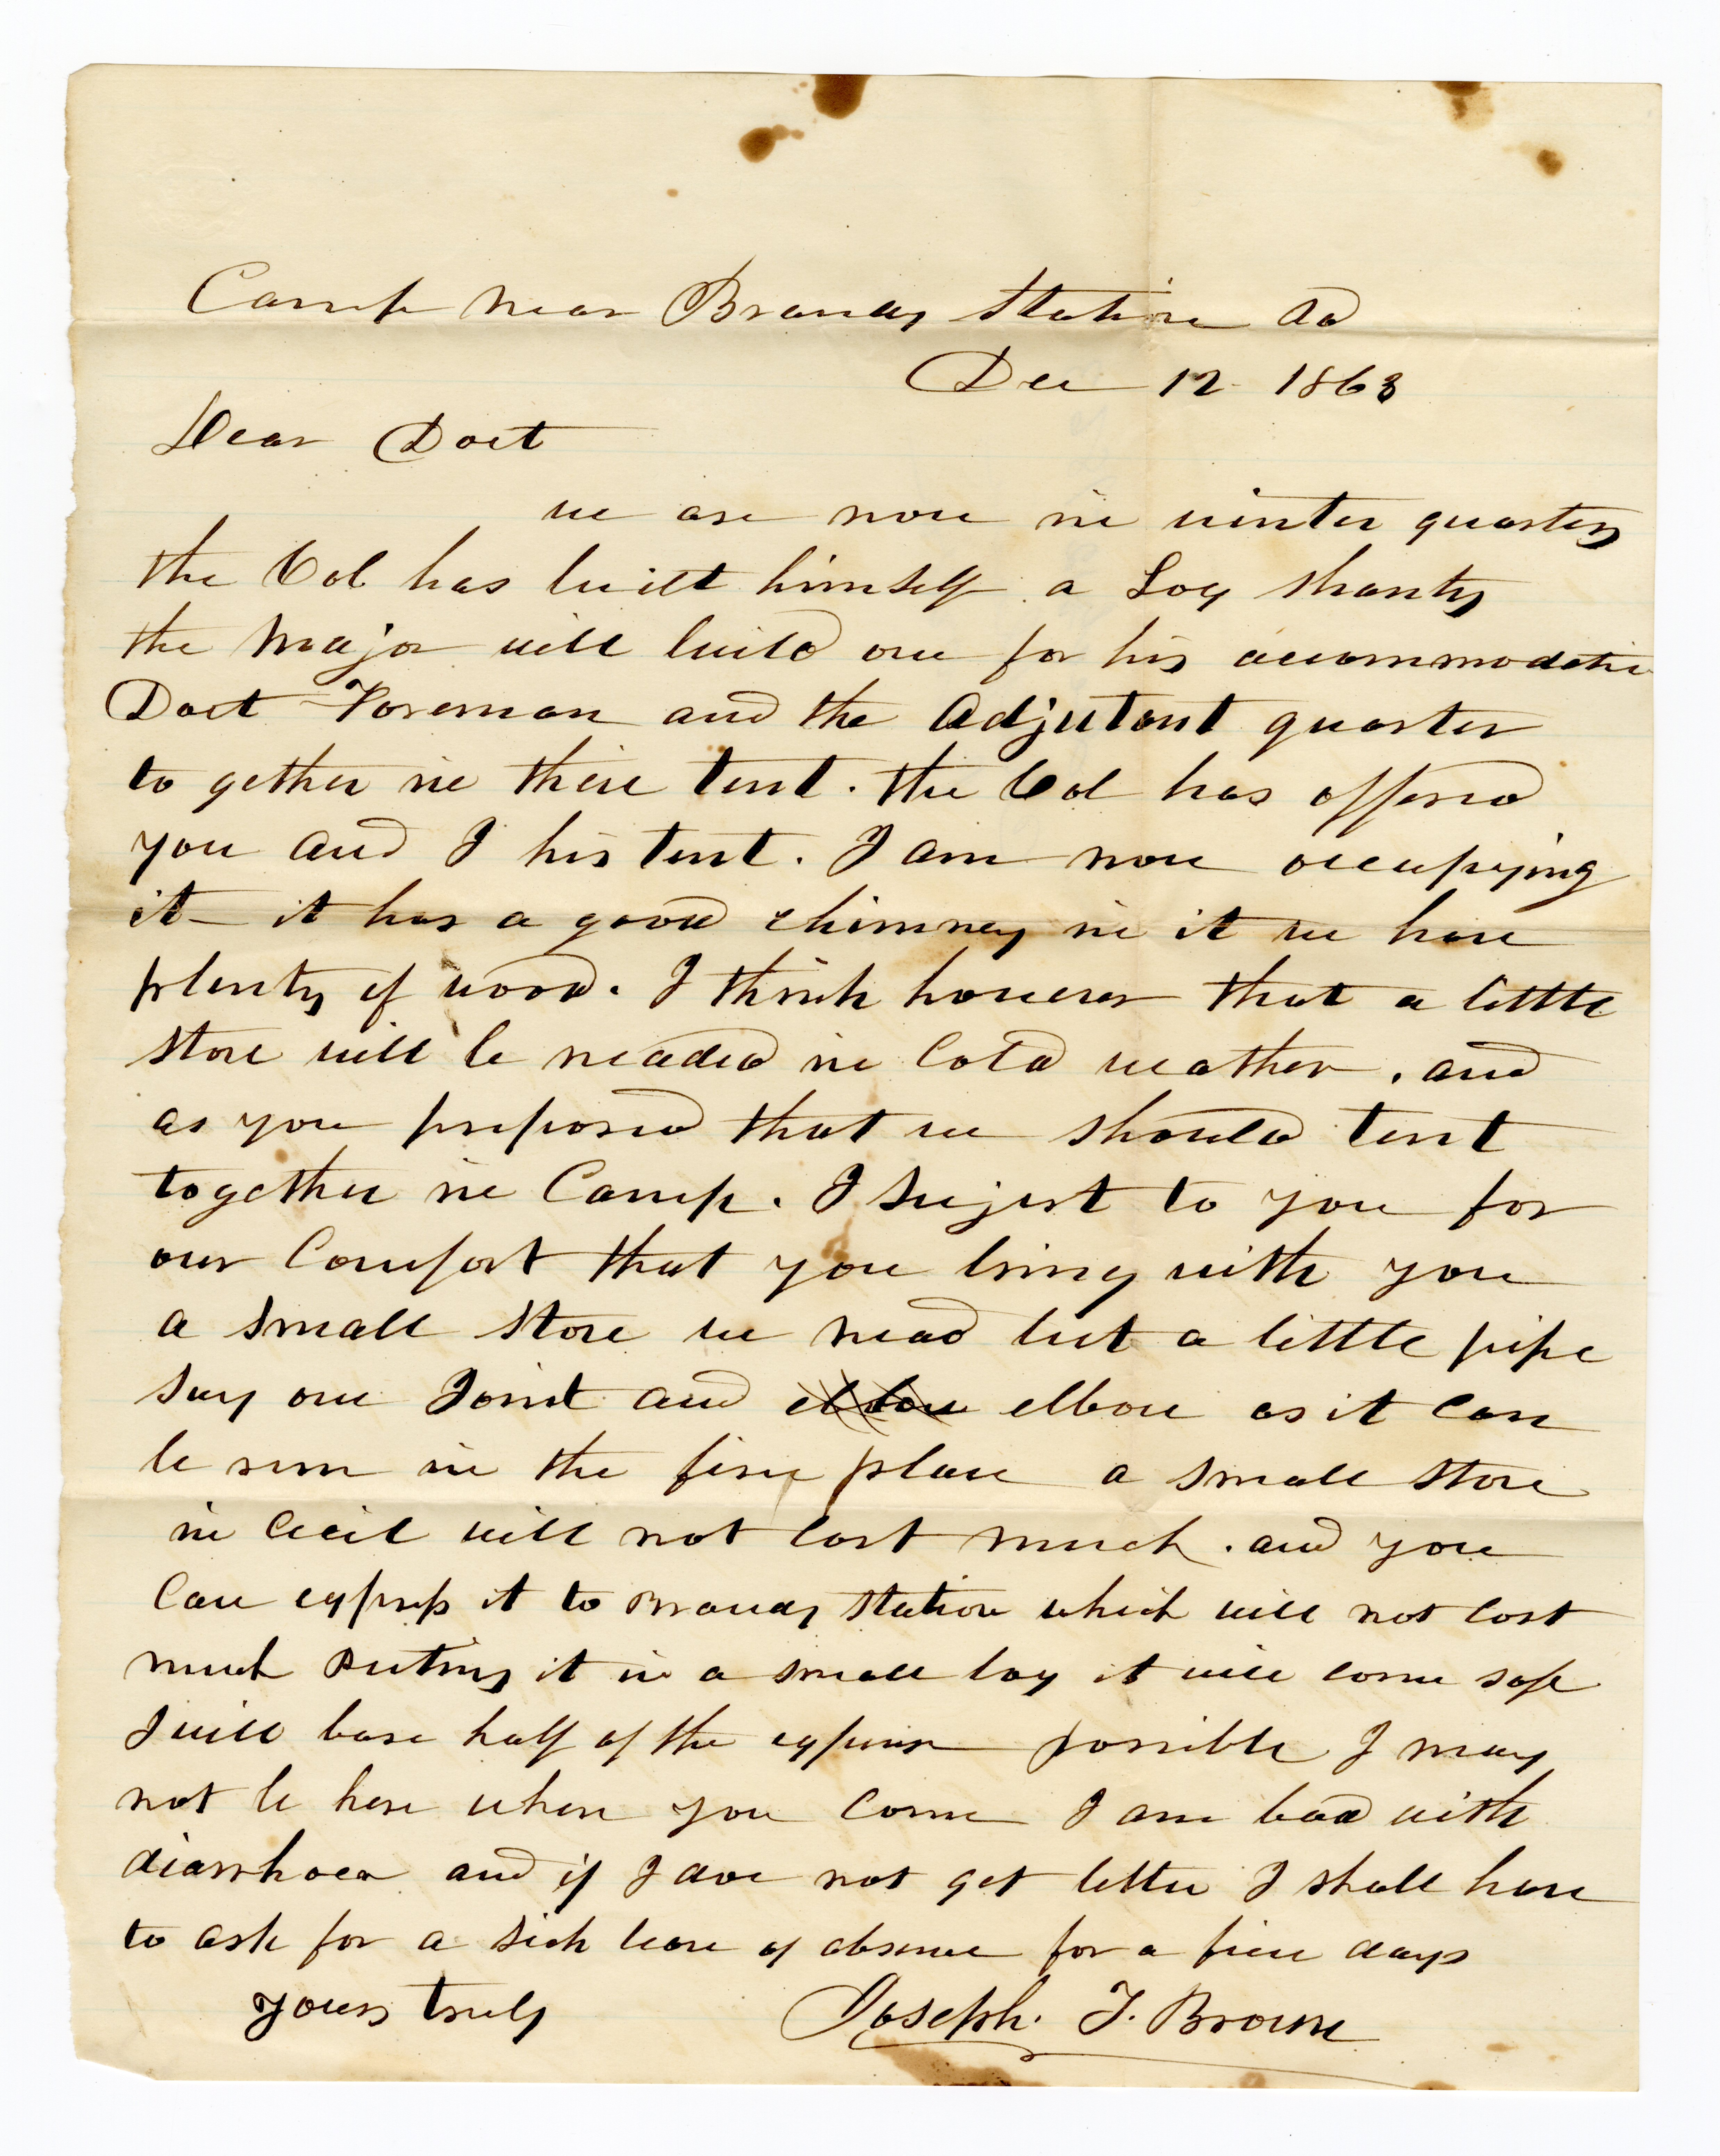 Camp near Brandy Station Va
Dec 12 1863
Dear Doct
we are now in winter quarters
the Col has built himself a Log shanty
the Major will build one for his accommodation
Doct Foreman and the Adjutant quarter
to gether in their tent. the Col has offered
you and I his tent. I am now occupying
it - it has a good chimney in it we have
plenty of wood. I think however that a little
stove will be needed in Cold weather. and
as you preposed that we should tent
together in Camp. I sujest to you for
our Comfort that you bring with you
a small stove we need but a little pipe
say one Joint and elbow elbow as it can
be run in the fire place a small stove
in Cecil will not cost much. and you
Can express it to Brandy Station which will not cost
much Puting it in a small box it will come safe
I will bare half of the expense possible I may
not be here when you Come I am bad with
diarrhoea and if I doe not get better I shall have
to ask for a sick leave of absence for a few days
yours truly Joseph. T. Brown